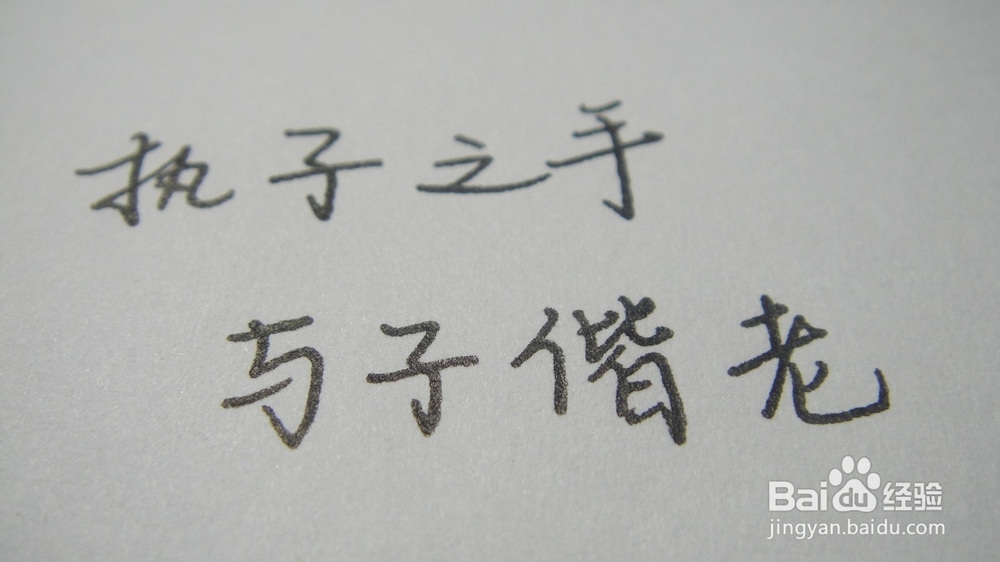 执子之手
与子偕老
Baidu经验
jingyan.baidu.com